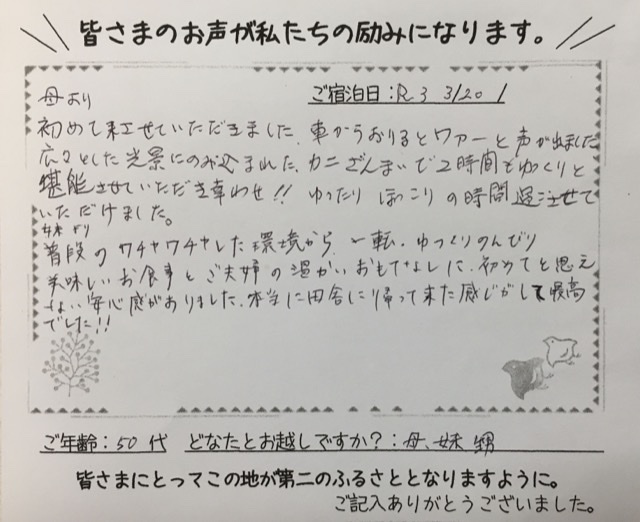 皆さまのお声が私たちの励みになります。
ご宿泊日:R3 3/20
母より
初めて来させていただきました、車からおりるとワァーと声が出ました
広々とした光景にのみ込まれた、カニざんまいで2時間もゆっくりと
堪能させていただき幸わせ!! ゆったり ほっこりの時間過ごせて
いただけました。
妹より
普段のワチャワチャした環境から 一転、ゆっくりのんびり
美味しいお食事とご夫婦の温かいおもてなしに、初めてと思え
ない安心感がありました、本当に田舎に帰って来た感じがして最高
でした!!
ご年齢:50代 どなたとお越しですか?:母、妹 甥
皆さまにとってこの地が第二のふるさととなりますように。
ご記入ありがとうございました。